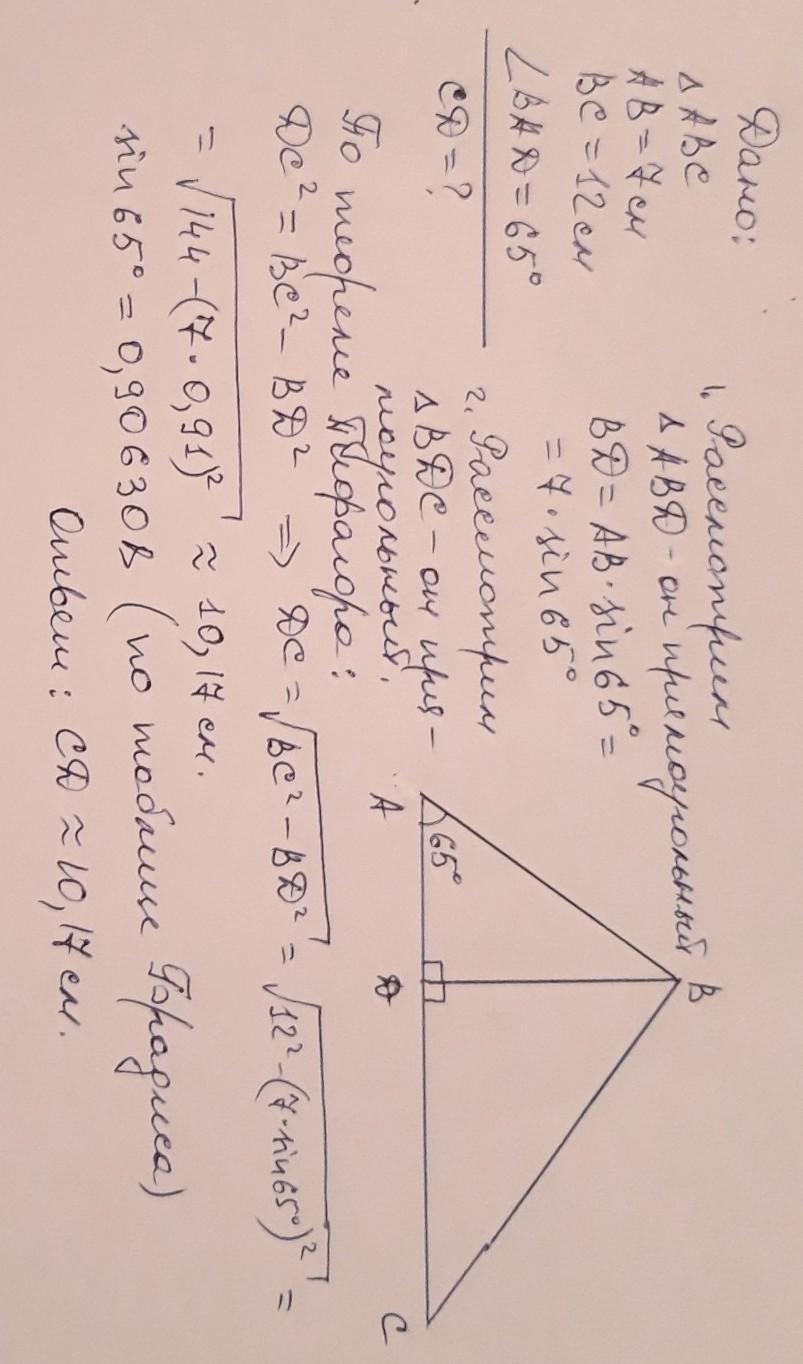 Дано:
Δ ABC
AB = 7 см
BC = 12 см
∠BAD = 65°
CD = ?
1. Рассмотрим
Δ ABD - он прямоугольный
BD = AB · sin 65° =
= 7 · sin 65°
2. Рассмотрим
Δ BDC - он прям-
моугольный.
По теореме Пифагора:
DC² = BC² - BD² => DC = √BC² - BD² = √12² - (7 · sin 65°)² =
= √144 - (7 · 0,91)² ≈ 10,17 см.
sin 65° = 0,906308 (по таблице Брадиса)
Ответ: CD ≈ 10,17 см.
A
65°
D
B
C